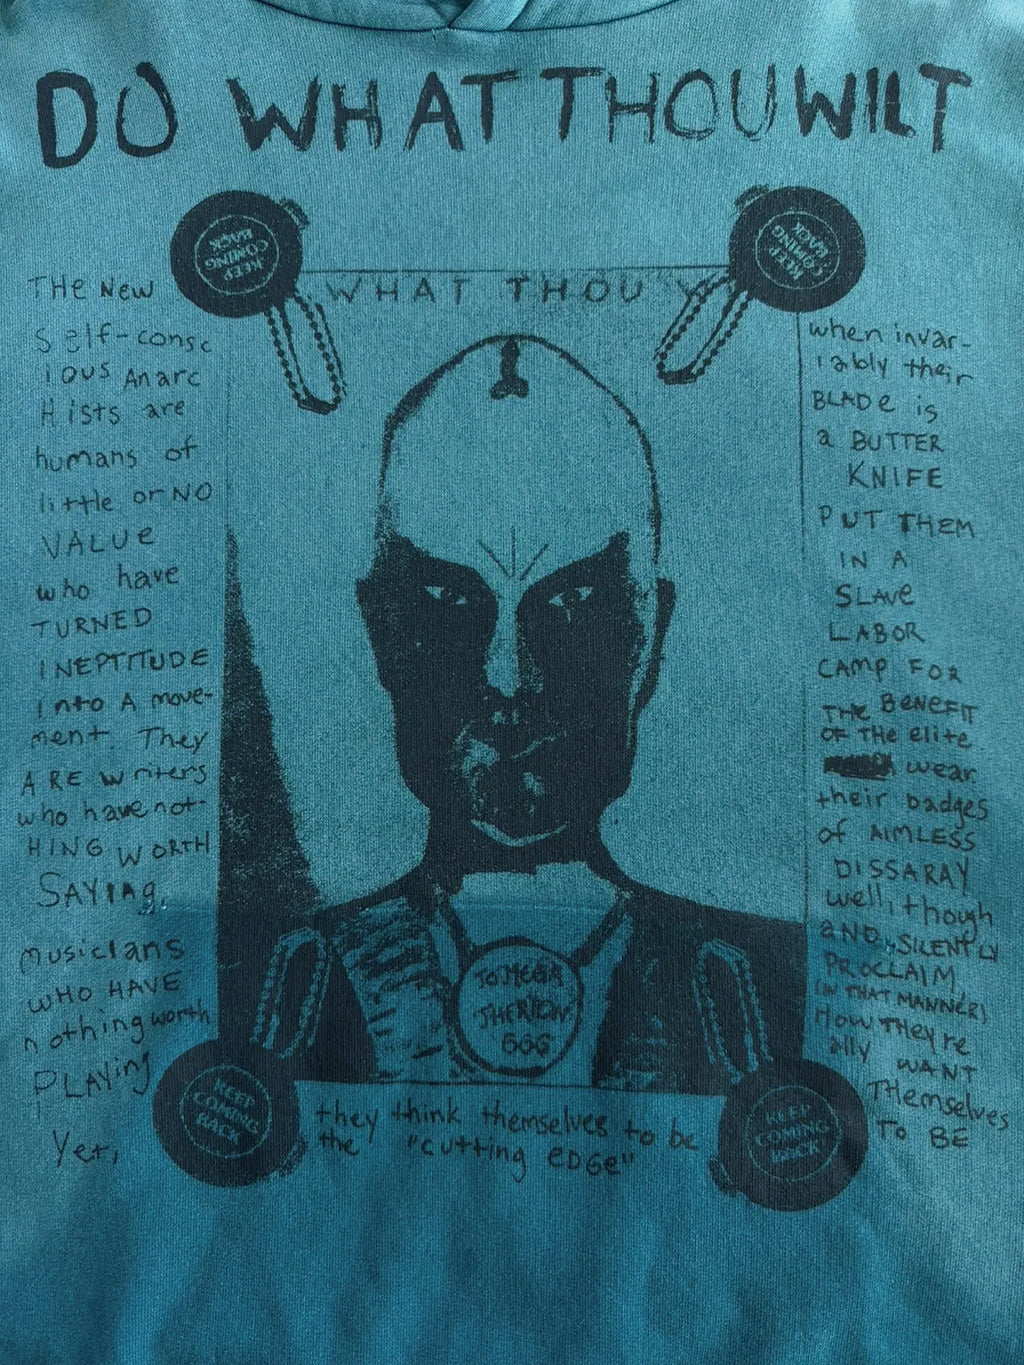 DO WHAT THOU WILT
KEEP
COMING
BACK
KEEP
COMING
BACK
WHAT THOU W
THE NEW
Self-consc
ious Anarc
Hists are
humans of
little or NO
VALUe
who have
TURNED
INEPTITUDE
into A move-
ment. They
ARE writers
who have not-
HING WORTH
SAYING,
musicians
WHO HAVE
nothing worth
PLAYing
Yet,
they think themselves to be
the "cutting EDGe"
when invar-
iably their
BLADe is
a BUTTER
KNIFE
PUT THEM
IN A
SLAVe
LABOR
CAMP FOR
THE BENEFIT
OF THe elite
wear
their badges
of AIMLESS
DISSARAY
well, though
aND SILENTLY
PROCLAIM,
(IN THAT MANNER)
HOW THEy're
ally WANT
THemselves
TO BE
TO MEGA
THERION
666
KEEP
COMING
BACK
KEEP
COMING
BACK